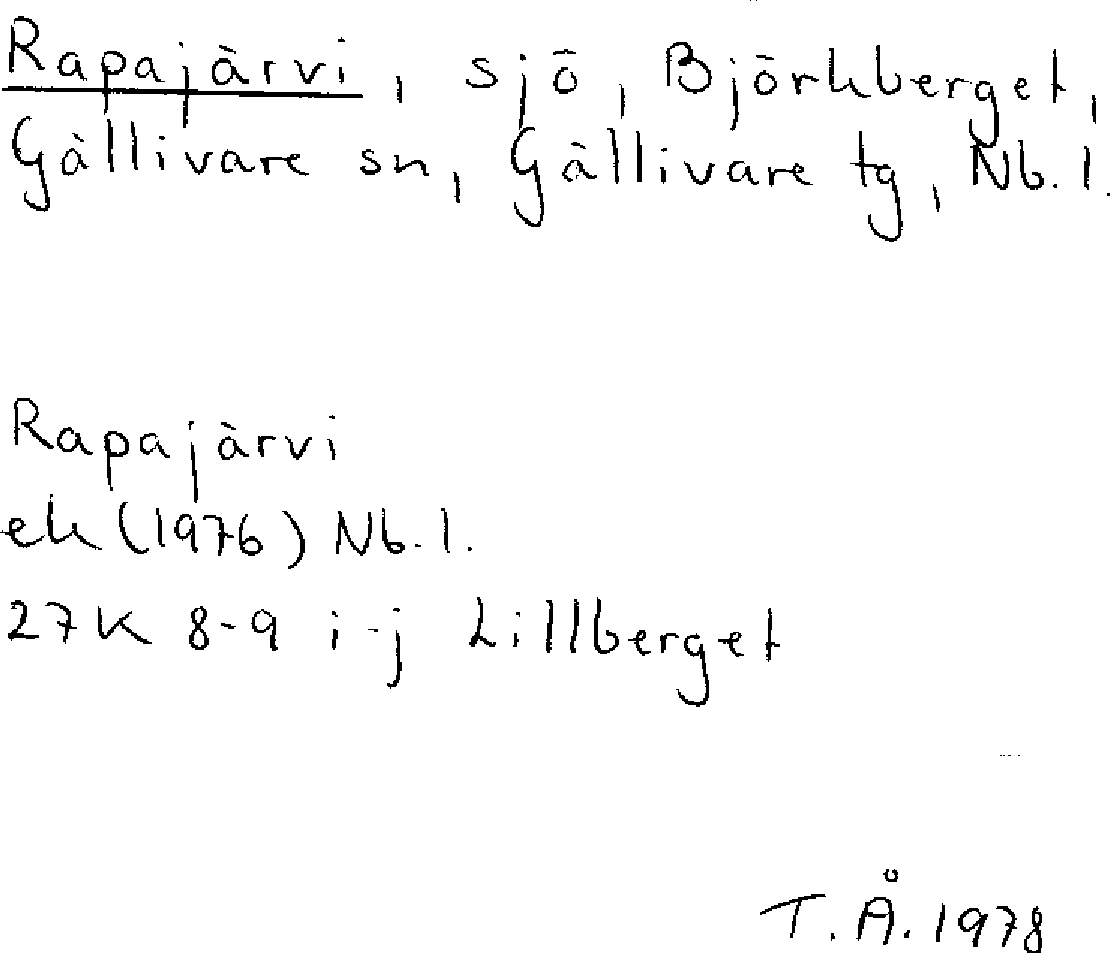 Rapajärvi, sjö, Björkberget,
Gällivare sn, Gällivare tg, Nb. l.
Rapajärvi
ek (1976) Nb. l.
27K 8-9 i-j Lillberget
T. Å. 1978